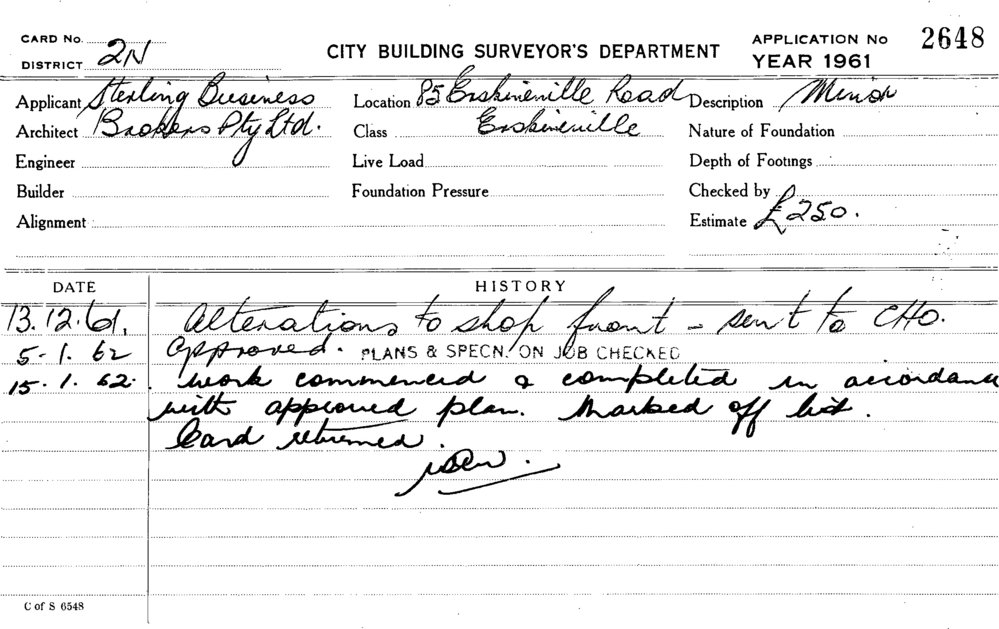 CARD No.
DISTRICT 2N
CITY BUILDING SURVEYOR'S DEPARTMENT
APPLICATION No 2648
YEAR 1961
Applicant Sterling Business
Location 85 Erskineville Road
Description Minor
Architect Brokers Pty Ltd.
Class Erskineville
Nature of Foundation
Engineer
Live Load
Depth of Footings
Builder
Foundation Pressure
Checked by
Alignment
Estimate £250.
DATE HISTORY
13.12.61. Alterations to shop front - sent to CHO.
5.1.62 Approved. PLANS & SPECN. ON JOB CHECKED
15.1.62. work commenced & completed in accordance
with approved plan. Marked off list.
Card returned.
C of S 6548